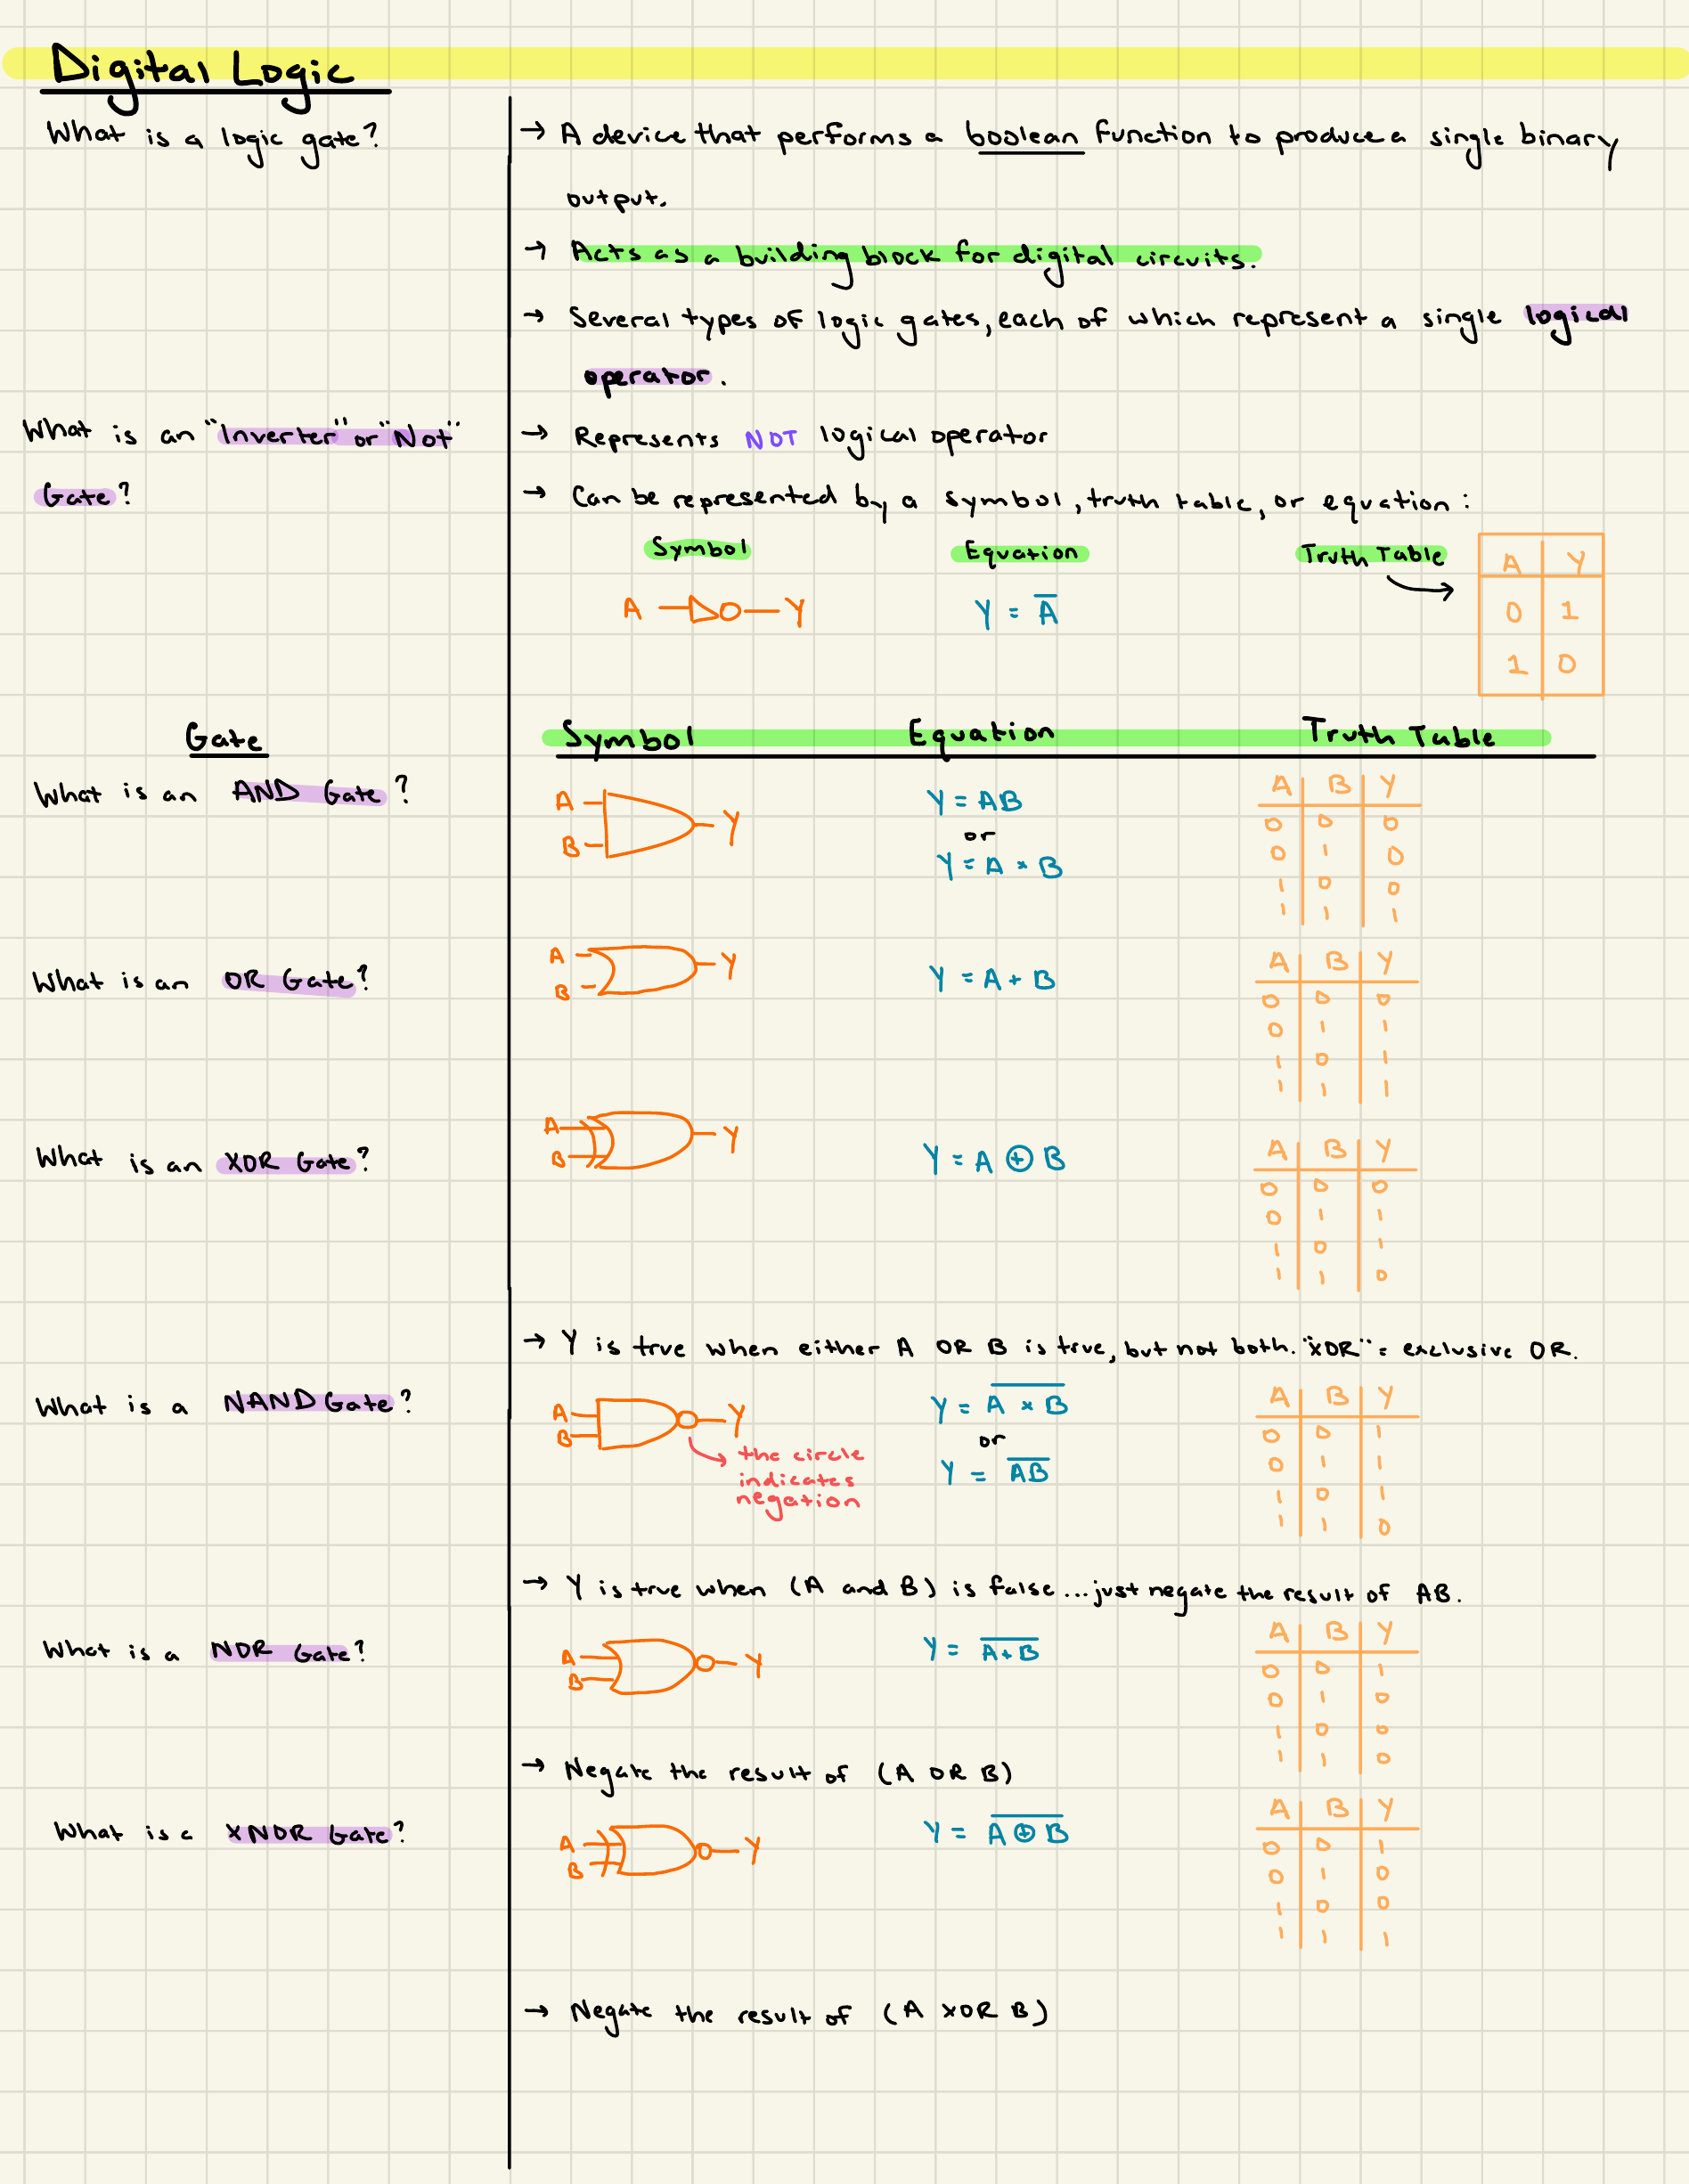 Digital Logic
What is a logic gate?
→ A device that performs a boolean function to produce a single binary
output.
→ Acts as a building block for digital circuits.
→ Several types of logic gates, each of which represent a single logical
operator.
What is an "Inverter" or "Not"
Gate?
→ Represents NOT logical operator
→ Can be represented by a symbol, truth table, or equation:
Symbol Equation Truth Table
A Y
Y = A̅
A Y
0 1
1 0
Gate Symbol Equation Truth Table
What is an AND Gate?
A
B
Y
Y = AB
or
Y = A × B
A B Y
0 0 0
0 1 0
1 0 0
1 1 1
What is an OR Gate?
A
B
Y
Y = A + B
A B Y
0 0 0
0 1 1
1 0 1
1 1 1
What is an XOR Gate?
A
B
Y
Y = A ⊕ B
A B Y
0 0 0
0 1 1
1 0 1
1 1 0
→ Y is true when either A OR B is true, but not both. "XOR" = exclusive OR.
What is a NAND Gate?
A
B
Y
the circle
indicates
negation
Y = A̅ ̅×̅ ̅B̅
or
Y = A̅B̅
A B Y
0 0 1
0 1 1
1 0 1
1 1 0
→ Y is true when (A and B) is false...just negate the result of AB.
What is a NOR Gate?
A
B
Y
Y = A̅+̅B̅
A B Y
0 0 1
0 1 0
1 0 0
1 1 0
→ Negate the result of (A OR B)
What is a XNOR Gate?
A
B
Y
Y = A̅ ̅⊕̅ ̅B̅
A B Y
0 0 1
0 1 0
1 0 0
1 1 1
→ Negate the result of (A XOR B)